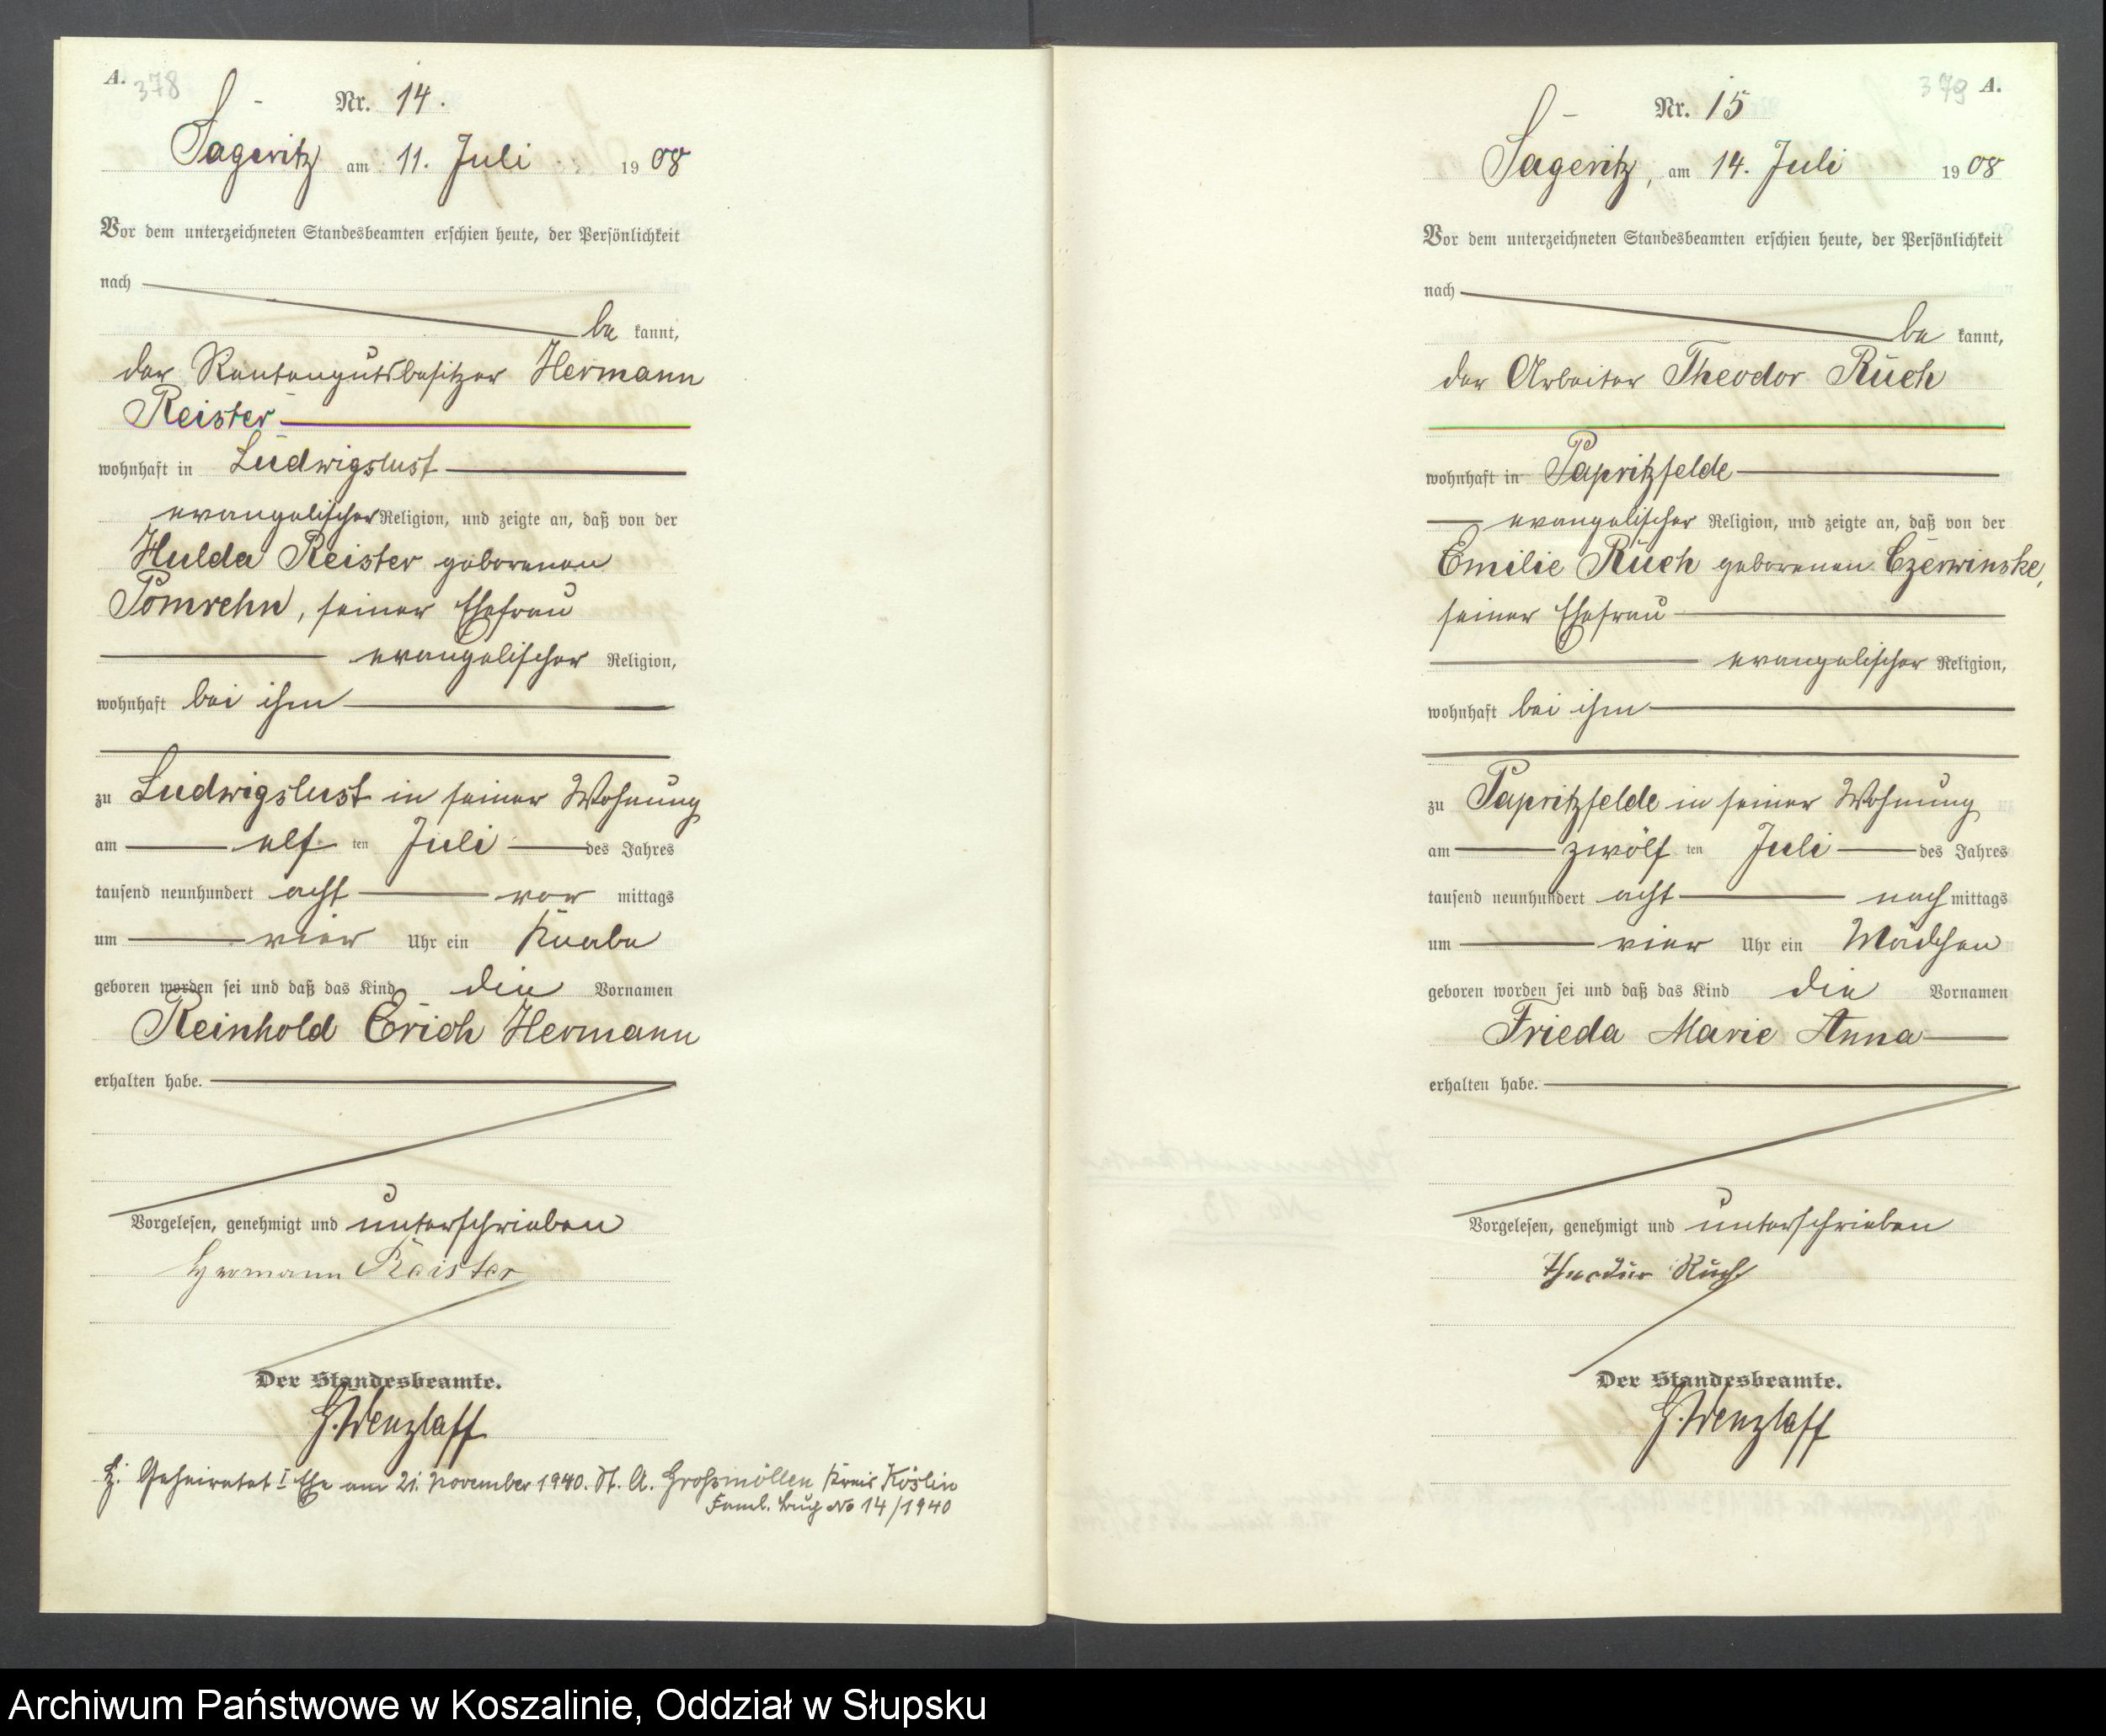 A. 378
Nr. 14.
Sageritz am 11. Juli 1908
Vor dem unterzeichneten Standesbeamten erschien heute, der Persönlichkeit
nach
be kannt,
der Rentengutsbesitzer Hermann
Reister
wohnhaft in Ludwigslust
evangelischer Religion, und zeigte an, daß von der
Hulda Reister geborenen
Pomrehn, seiner Ehefrau
evangelischer Religion,
wohnhaft bei ihm
zu Ludwigslust in seiner Wohnung
am elf ten Juli des Jahres
tausend neunhundert acht vor mittags
um vier Uhr ein Knabe
geboren worden sei und daß das Kind die Vornamen
Reinhold Erich Hermann
erhalten habe.
Vorgelesen, genehmigt und unterschrieben
Hermann Reister
Der Standesbeamte.
G. Wenzlaff
Geheiratet I Ehe am 21. November 1940. St. A. Großmöllen Kreis Köslin
Faml. Buch No 14/1940
379 A.
Nr. 15
Sageritz, am 14. Juli 1908
Vor dem unterzeichneten Standesbeamten erschien heute, der Persönlichkeit
nach
be kannt,
der Arbeiter Theodor Ruch
wohnhaft in Papritzfelde
evangelischer Religion, und zeigte an, daß von der
Emilie Ruch geborenen Czerwinske,
seiner Ehefrau
evangelischer Religion,
wohnhaft bei ihm
zu Papritzfelde in seiner Wohnung
am zwölf ten Juli des Jahres
tausend neunhundert acht nach mittags
um vier Uhr ein Mädchen
geboren worden sei und daß das Kind die Vornamen
Frieda Marie Anna
erhalten habe.
Vorgelesen, genehmigt und unterschrieben
Theodor Ruch
Der Standesbeamte.
G. Wenzlaff
Archiwum Państwowe w Koszalinie, Oddział w Słupsku